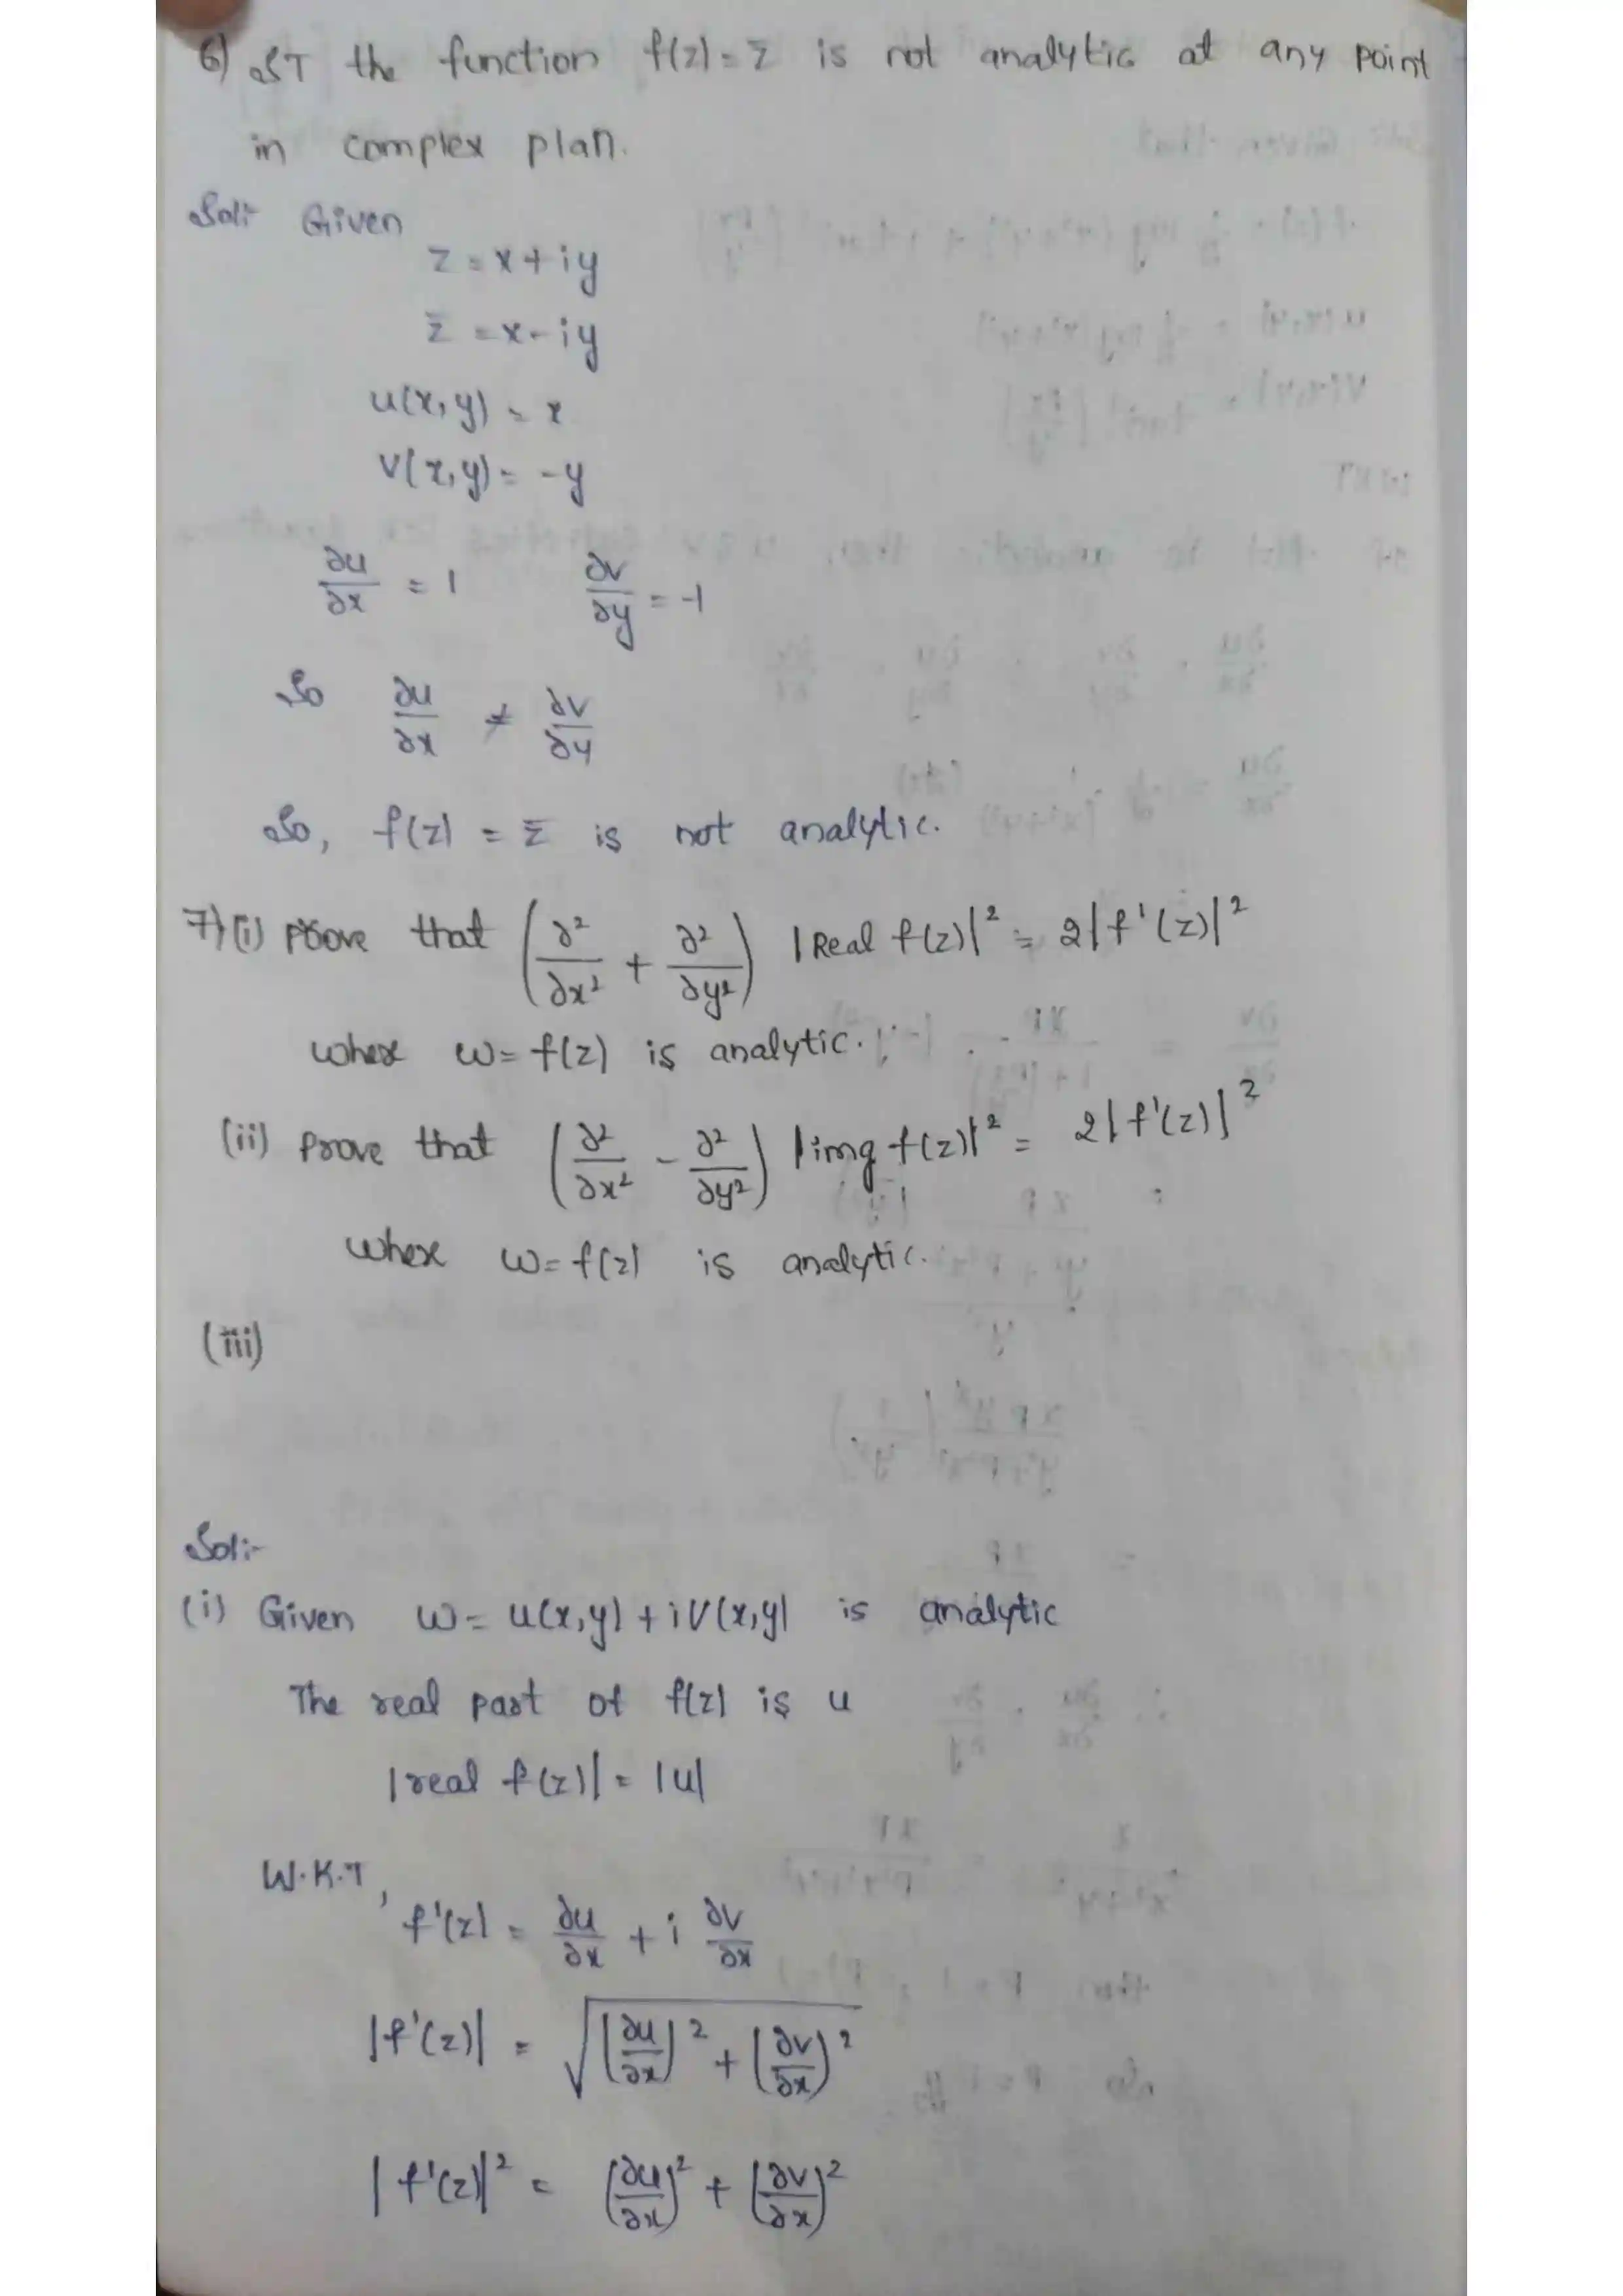 6) ST the function f(z) = z̄ is not analytic at any point
in complex plan.
Sol:- Given
z = x + iy
z̄ = x - iy
u(x,y) = x
v(x,y) = -y
∂u/∂x = 1 ∂v/∂y = -1
So ∂u/∂x ≠ ∂v/∂y
So, f(z) = z̄ is not analytic.
7) (i) prove that (∂²/∂x² + ∂²/∂y²) |Real f(z)|² = 2|f'(z)|²
where w = f(z) is analytic.
(ii) prove that (∂²/∂x² - ∂²/∂y²) |img f(z)|² = 2|f'(z)|²
where w = f(z) is analytic.
(iii)
Sol:-
(i) Given w = u(x,y) + iv(x,y) is analytic
The real part of f(z) is u
|real f(z)| = |u|
W.K.T,
f'(z) = ∂u/∂x + i ∂v/∂x
|f'(z)| = √((∂u/∂x)² + (∂v/∂x)²)
|f'(z)|² = (∂u/∂x)² + (∂v/∂x)²